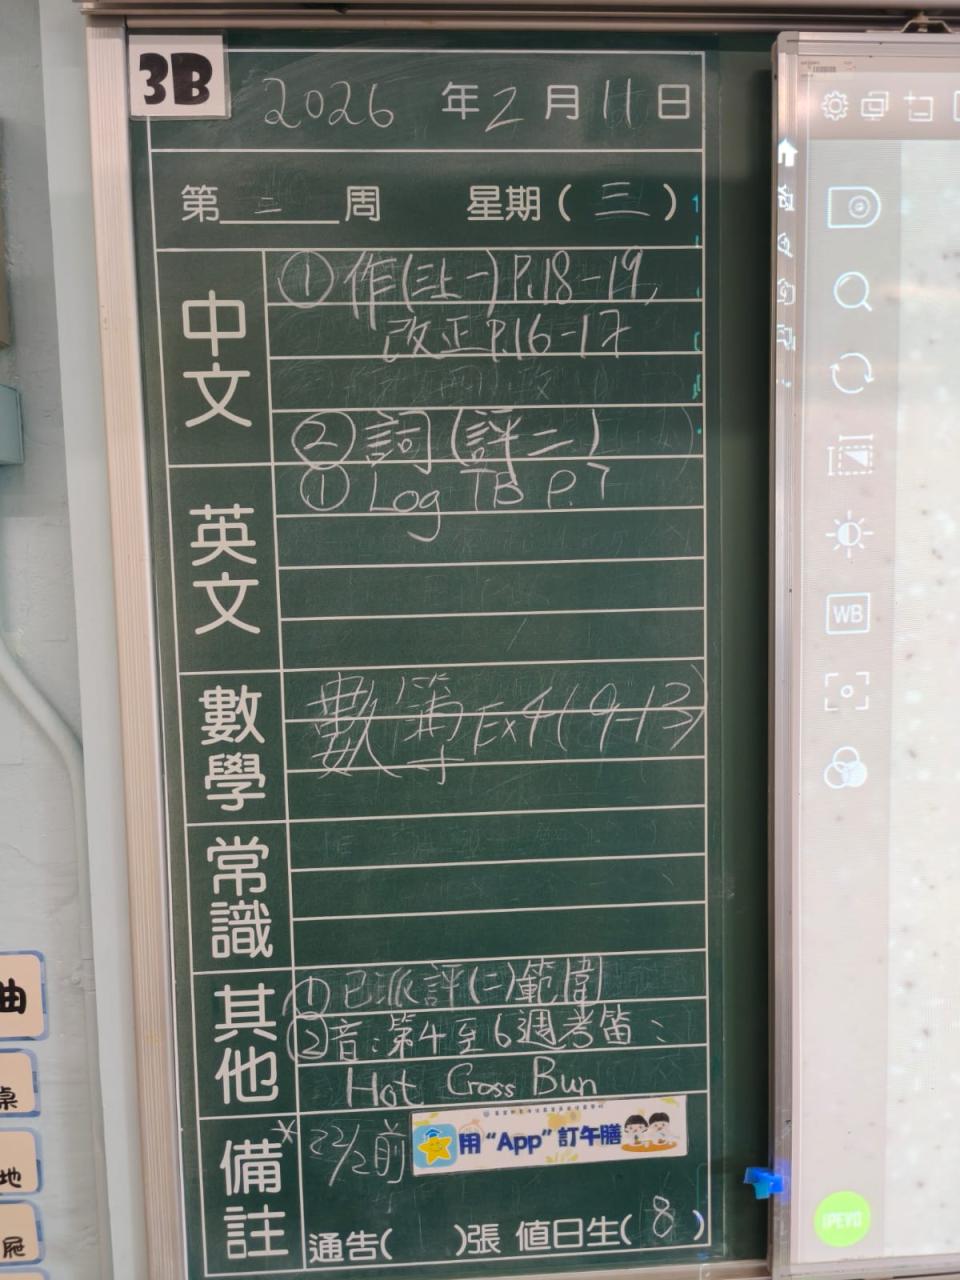 3B
2026 年 2 月 11 日
第 二 周 星期 ( 三 )
中文
① 作(三上一) P.18-19,
改正P.16-17
② 詞(評二)
英文
① Log TB P.7
數學
數簿 Ex4(9-13)
常識
其他
① 已派評(二)範圍
② 音:第4至6週考笛:
Hot Cross Bun
備註
* 22/2前
用“App”訂午膳
通告( )張 值日生( 8 )
WB
IPEVO
曲
桌
地